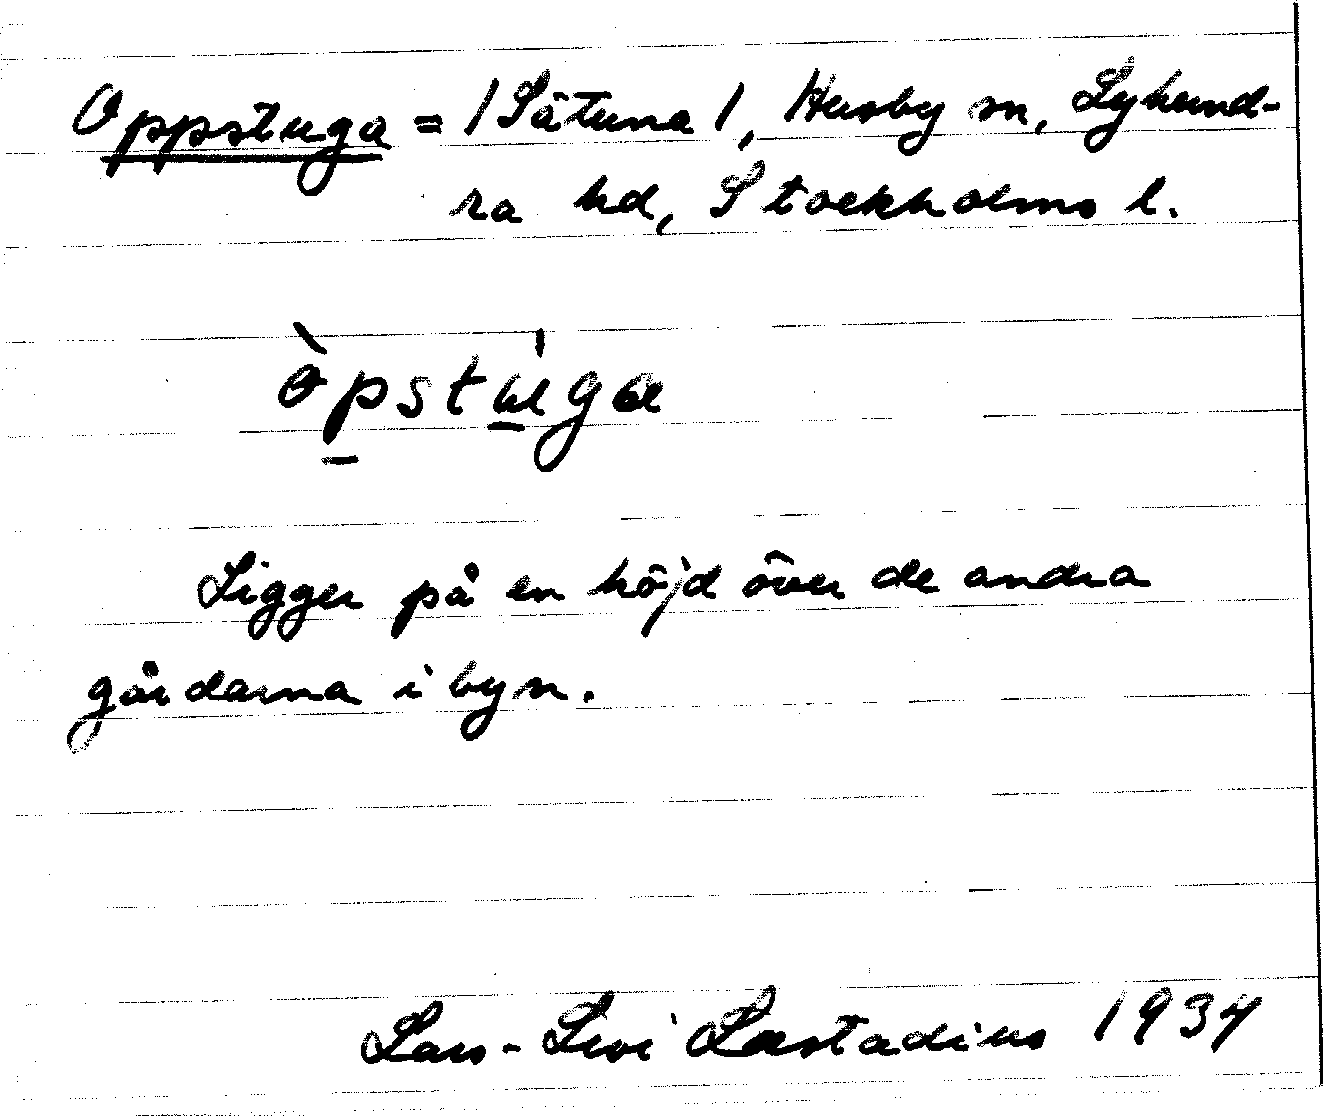 Oppstuga = /Sätuna/, Husby sn, Lyhund-
ra hd, Stockholms l.
òpstu̠ga
Ligger på en höjd över de andra
gårdarna i byn.
Lars-Levi Læstadius 1934